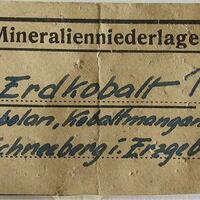 Mineralienniederlage
Erdkobalt 1
bolan, Kobaltmangan
Schneeberg i. Erzgeb